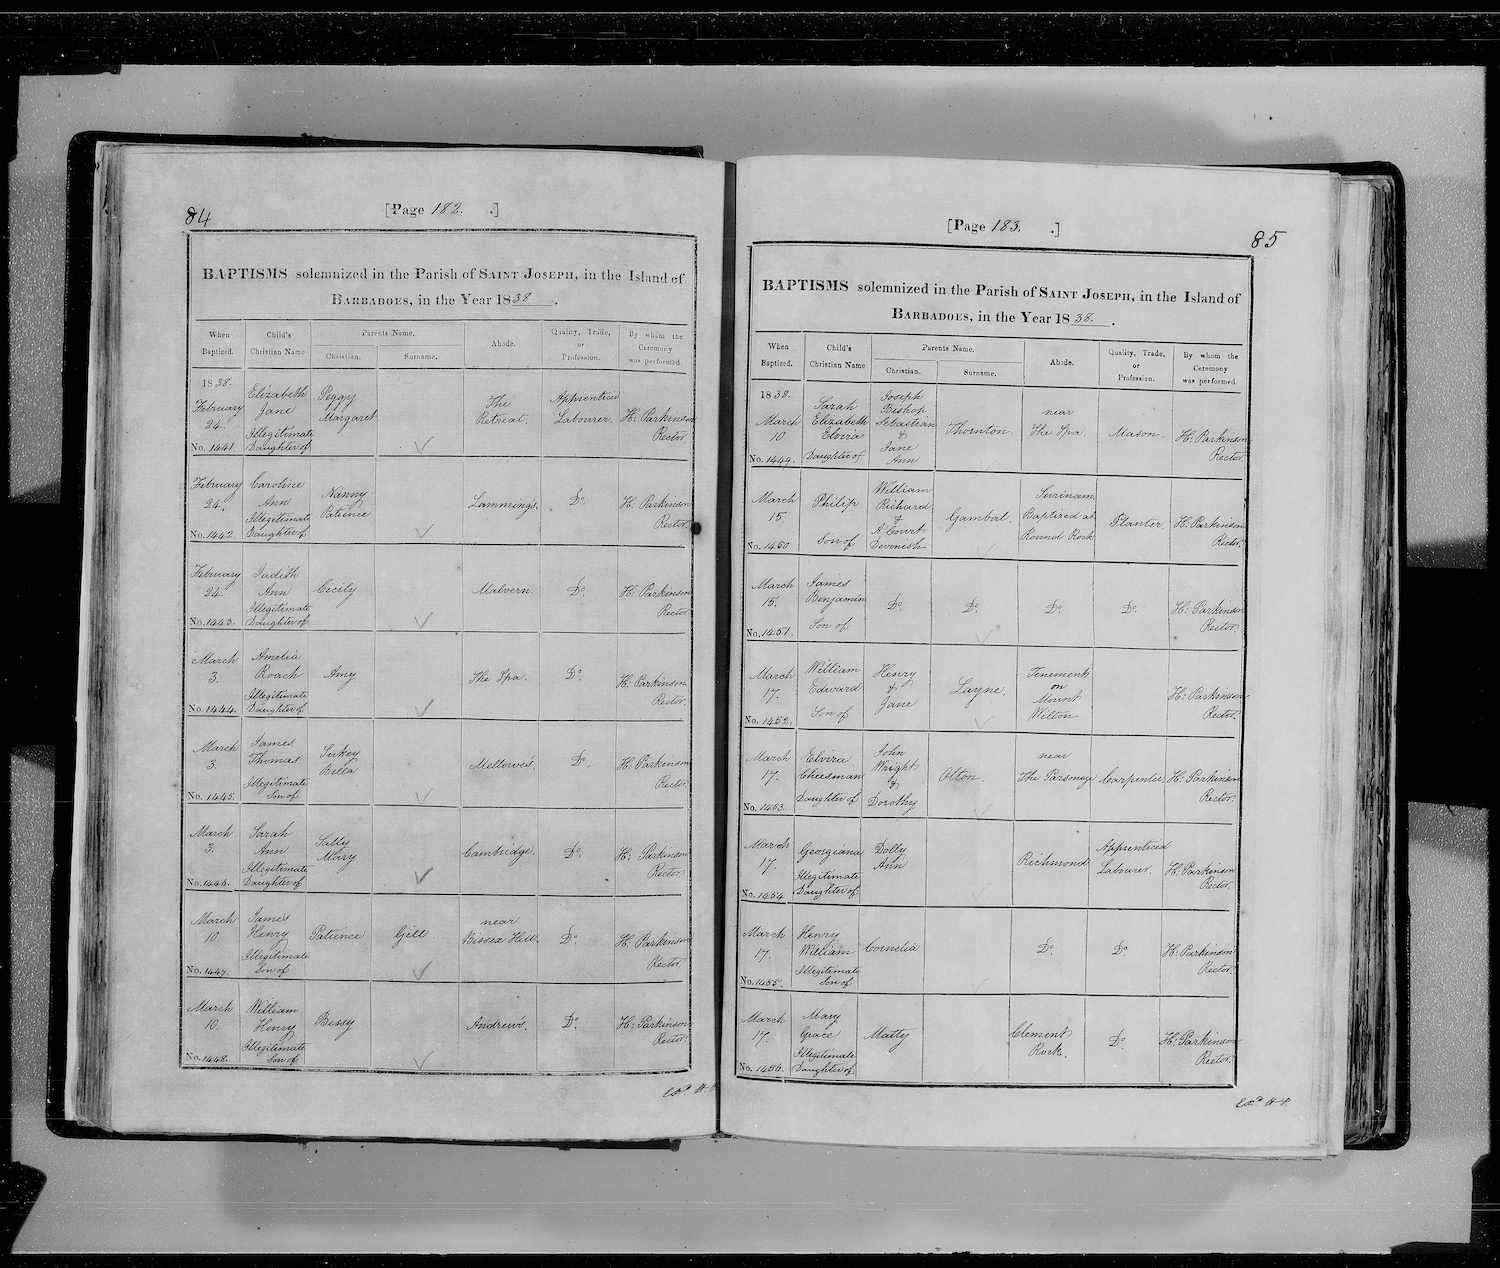 84
[Page 182. .]
BAPTISMS solemnized in the Parish of SAINT JOSEPH, in the Island of
BARBADOES, in the Year 1838.
When Baptized. Child's Christian Name Parents Name. Christian. Surname. Abode. Quality, Trade, or Profession. By whom the Ceremony was performed.
1838.
February 24. No. 1441. Elizabeth Jane Illegitimate Daughter of Peggy Margaret The Retreat. Apprenticed Labourer. H: Parkinson Rector.
February 24. No. 1442. Caroline Ann Illegitimate Daughter of Nanny Patience Lammings. Do. H: Parkinson Rector.
February 24. No. 1443. Judith Ann Illegitimate Daughter of Cicily Malvern. Do. H: Parkinson Rector.
March 3. No. 1444. Amelia Roach Illegitimate Daughter of Amy The Spa. Do. H: Parkinson Rector.
March 3. No. 1445. James Thomas Illegitimate Son of Bella Mellowes. Do. H: Parkinson Rector.
March 3. No. 1446. Sarah Ann Illegitimate Daughter of Sally Mary Cambridge. Do. H: Parkinson Rector.
March 10 No. 1447. James Henry Illegitimate Son of Patience Gill near Bissex Hill. Do. H: Parkinson Rector.
March 10. No. 1448. William Henry Illegitimate Son of Bessy Andrews. Do. H: Parkinson Rector.
Exd. H.P.
[Page 183. .]
85
BAPTISMS solemnized in the Parish of SAINT JOSEPH, in the Island of
BARBADOES, in the Year 1838.
When Baptized. Child's Christian Name Parents Name. Christian. Surname. Abode. Quality, Trade, or Profession. By whom the Ceremony was performed.
1838.
March 10 No. 1449. Sarah Elizabeth Elvira Daughter of Joseph Bishop Sebastian & Jane Ann Thornton. near The Spa Mason. H: Parkinson Rector.
March 15. No. 1450 Philip Son of William Richard & A'Court Devenish Gambal. Surinam Baptized at Round Rock Planter. H: Parkinson Rector.
March 15. No. 1451. James Benjamin Son of Do. Do. Do. Do. H: Parkinson Rector.
March 17. No. 1452. William Edward Son of Henry & Jane Layne. Tenement on Mount Wilton H: Parkinson Rector.
March 17. No. 1453. Elvira Cheesman Daughter of John Wright & Dorothy Olton. near The Parsonage Carpenter. H: Parkinson Rector.
March 17. No. 1454 Georgeana Illegitimate Daughter of Dolly Ann Richmond Apprenticed Labourer. H: Parkinson Rector.
March 17. No. 1455. Henry William Illegitimate Son of Cornelia Do. Do. H: Parkinson Rector.
March 17. No. 1456. Mary Grace Illegitimate Daughter of Matty Clement Rock. Do. H: Parkinson Rector.
Exd. H.P.